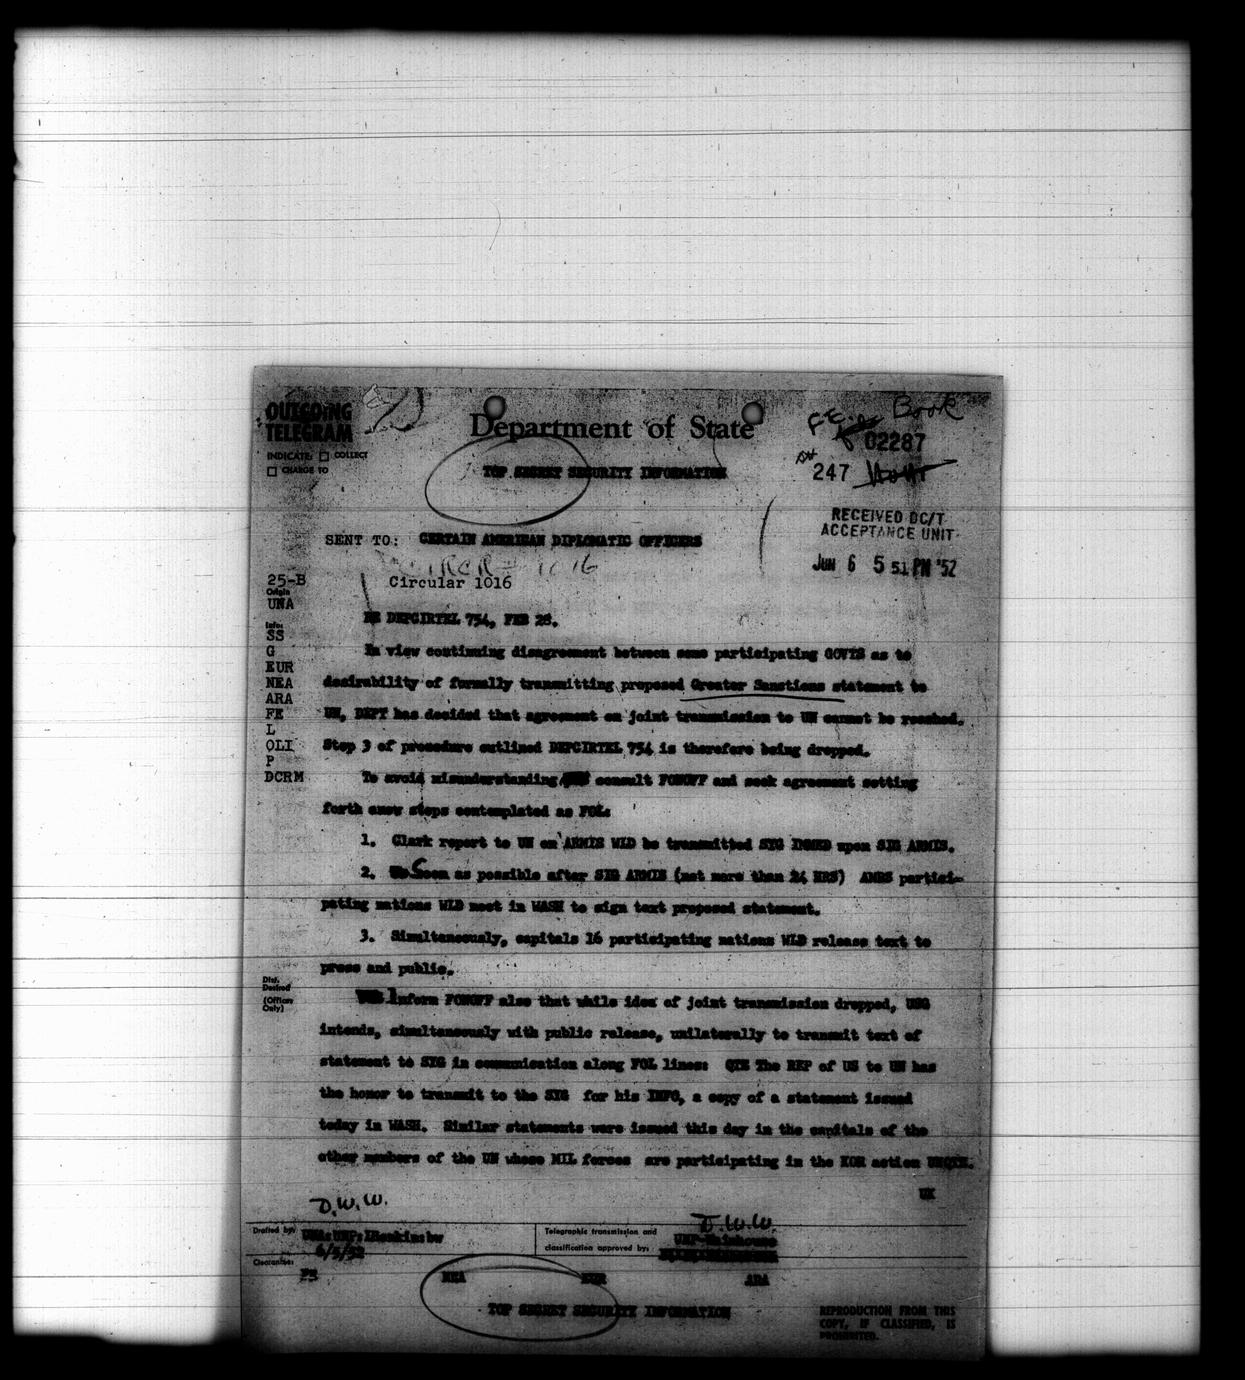 OUTGOING
TELEGRAM
INDICATE: ☐ COLLECT
☐ CHARGE TO
Department of State
TOP SECRET SECURITY INFORMATION
FE Book
02287
247
RECEIVED DC/T
ACCEPTANCE UNIT
JUN 6 5 51 PM '52
SENT TO: CERTAIN AMERICAN DIPLOMATIC OFFICERS
CIRCR 1016
Circular 1016
25-B
Origin
UNA
Info:
SS
G
EUR
NEA
ARA
FE
L
OLI
P
DCRM
RE DEPCIRTEL 754, FEB 28.
In view continuing disagreement between some participating GOVTS as to
desirability of formally transmitting proposed Greater Sanctions statement to
UN, DEPT has decided that agreement on joint transmission to UN cannot be reached.
Step 3 of procedure outlined DEPCIRTEL 754 is therefore being dropped.
To avoid misunderstanding consult FONOFF and seek agreement setting
forth steps contemplated as FOL:
1. Clark report to UN on ARMIS WLD be transmitted SYG IMMED upon SIG ARMIS.
2. Soon as possible after SIG ARMIS (not more than 24 HRS) AMBS partici-
pating nations WLD meet in WASH to sign text proposed statement.
3. Simultaneously, capitals 16 participating nations WLD release text to
press and public.
Dist.
Desired
(Offices
Only)
Inform FONOFF also that while idea of joint transmission dropped, USG
intends, simultaneously with public release, unilaterally to transmit text of
statement to SYG in communication along FOL lines: QTE The REP of US to UN has
the honor to transmit to the SYG for his INFO, a copy of a statement issued
today in WASH. Similar statements were issued this day in the capitals of the
other members of the UN whose MIL forces are participating in the KOR action UNQTE.
UK
D.W.W.
D.W.W.
Drafted by:
6/5/52
Telegraphic transmission and
classification approved by:
UNP-Wainhouse
Clearances:
FE NEA EUR ARA
TOP SECRET SECURITY INFORMATION
REPRODUCTION FROM THIS
COPY, IF CLASSIFIED, IS
PROHIBITED.